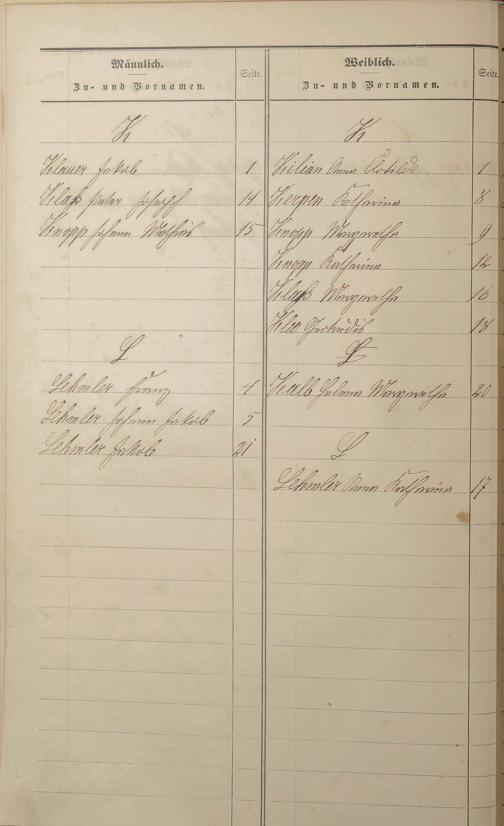 Männlich.
Zu- und Vornamen.
Seite.
K
Klauer Jakob 1
Klaß Peter Joseph 14
Knopp Johann Mathias 15
L
Lehmler Franz 4
Lehmler Johann Jakob 5
Lehmler Jakob 21
Weiblich.
Zu- und Vornamen.
Seite.
K
Kilian Anna Clotilde 1
Kerpen Katharina 8
Knopp Margaretha 9
Knopp Katharina 12
Klaß Margaretha 16
Klee Gertrudis 18
L
Kalb Helena Margaretha 20
L
Lehmler Anna Katharina 17